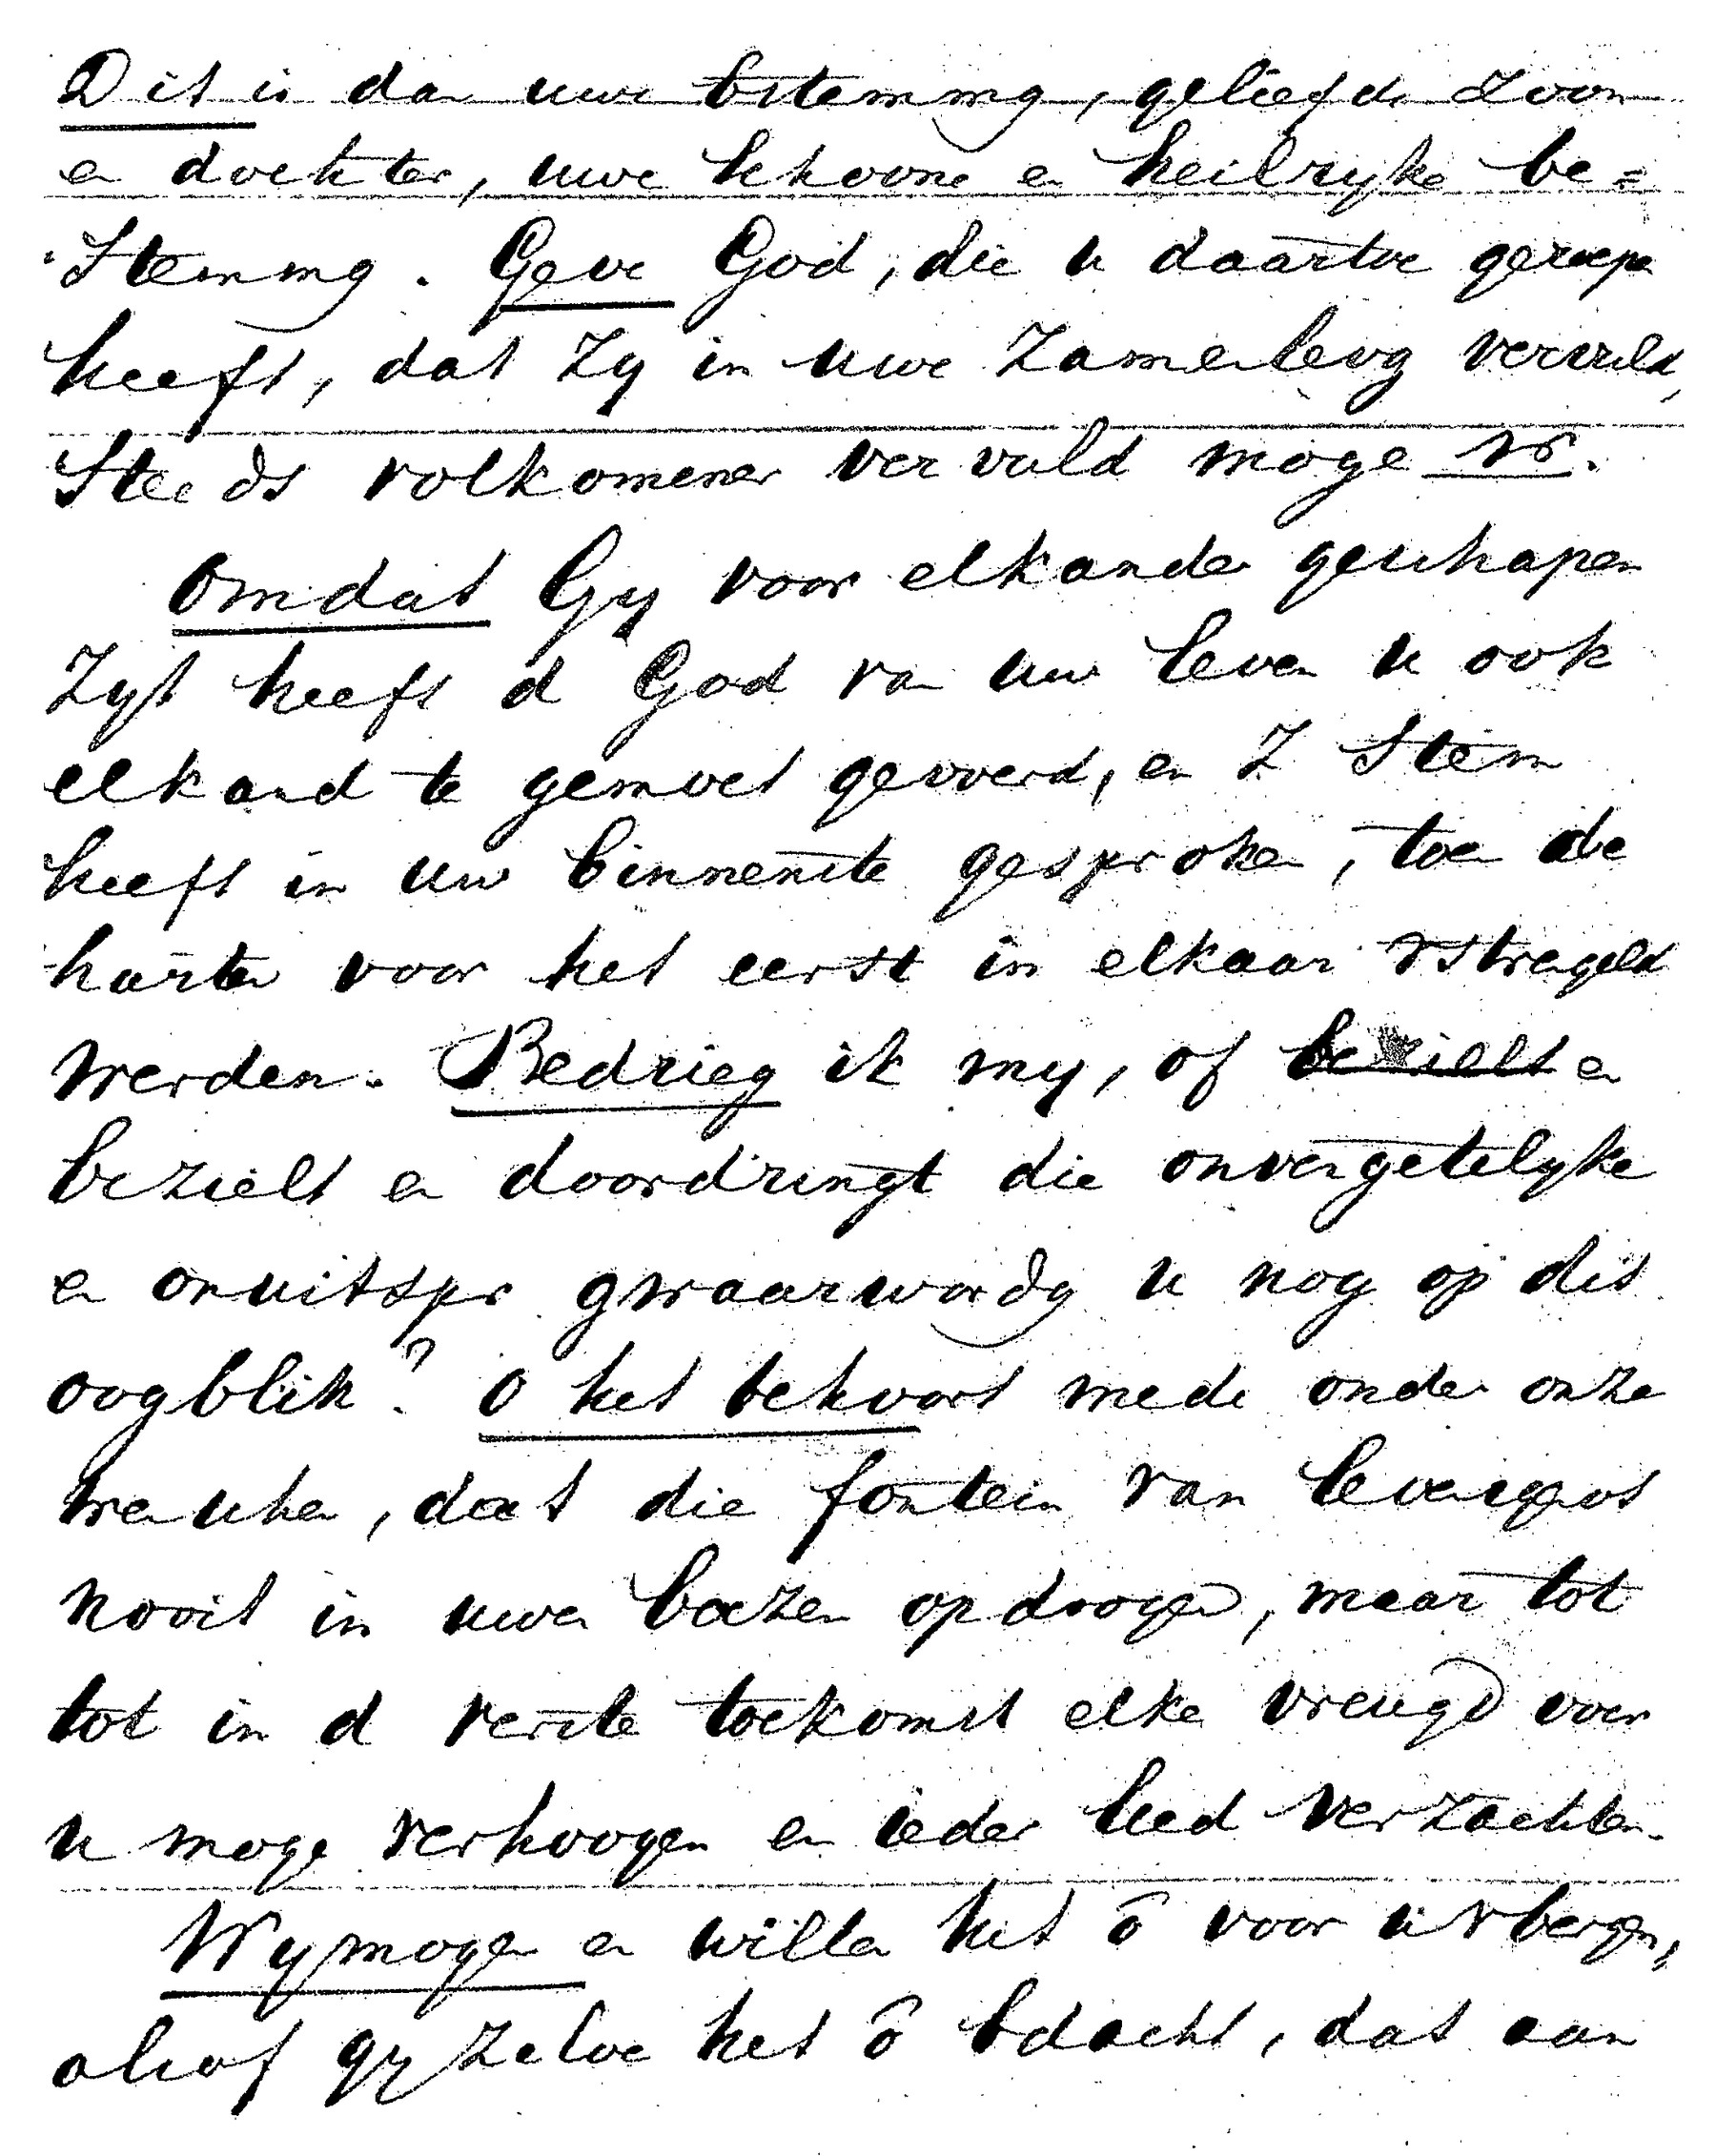 Dit is da uwe bestemmg, geliefde Zoon
e dochter, uwe schoone e heilryke be=
stemmg. Geve God, die u daartoe geroepe
heeft, dat Zy in uwe Zamelevg vervuld,
Steeds volkomener vervuld moge w.
Omdat Gy voor elkander geschapen
Zyt heeft d God va uw leven u ook
elkand te gemoet gevoerd, en Z Stem
heeft in uw binnenste gesproke, toe de
harte voor het eerst in elkaar vstrengeld
werden. Bedrieg ik my, of bezielt e
bezielt e doordringt die onvergetelyke
e onuitspr gwaarwordg u nog op dit
oogblik? O het behoort mede onder onze
wenschen, dat die fontein van levensgenot
nooit in uwe boezem opdroge, maar tot
tot in d verste toekomst elke vreugd voor
u moge verhoogen en ieder leed verzachten.
Wy mogen e wille het ô voor u vbergen,
alsof gy Zelve het ô bdacht, dat aan